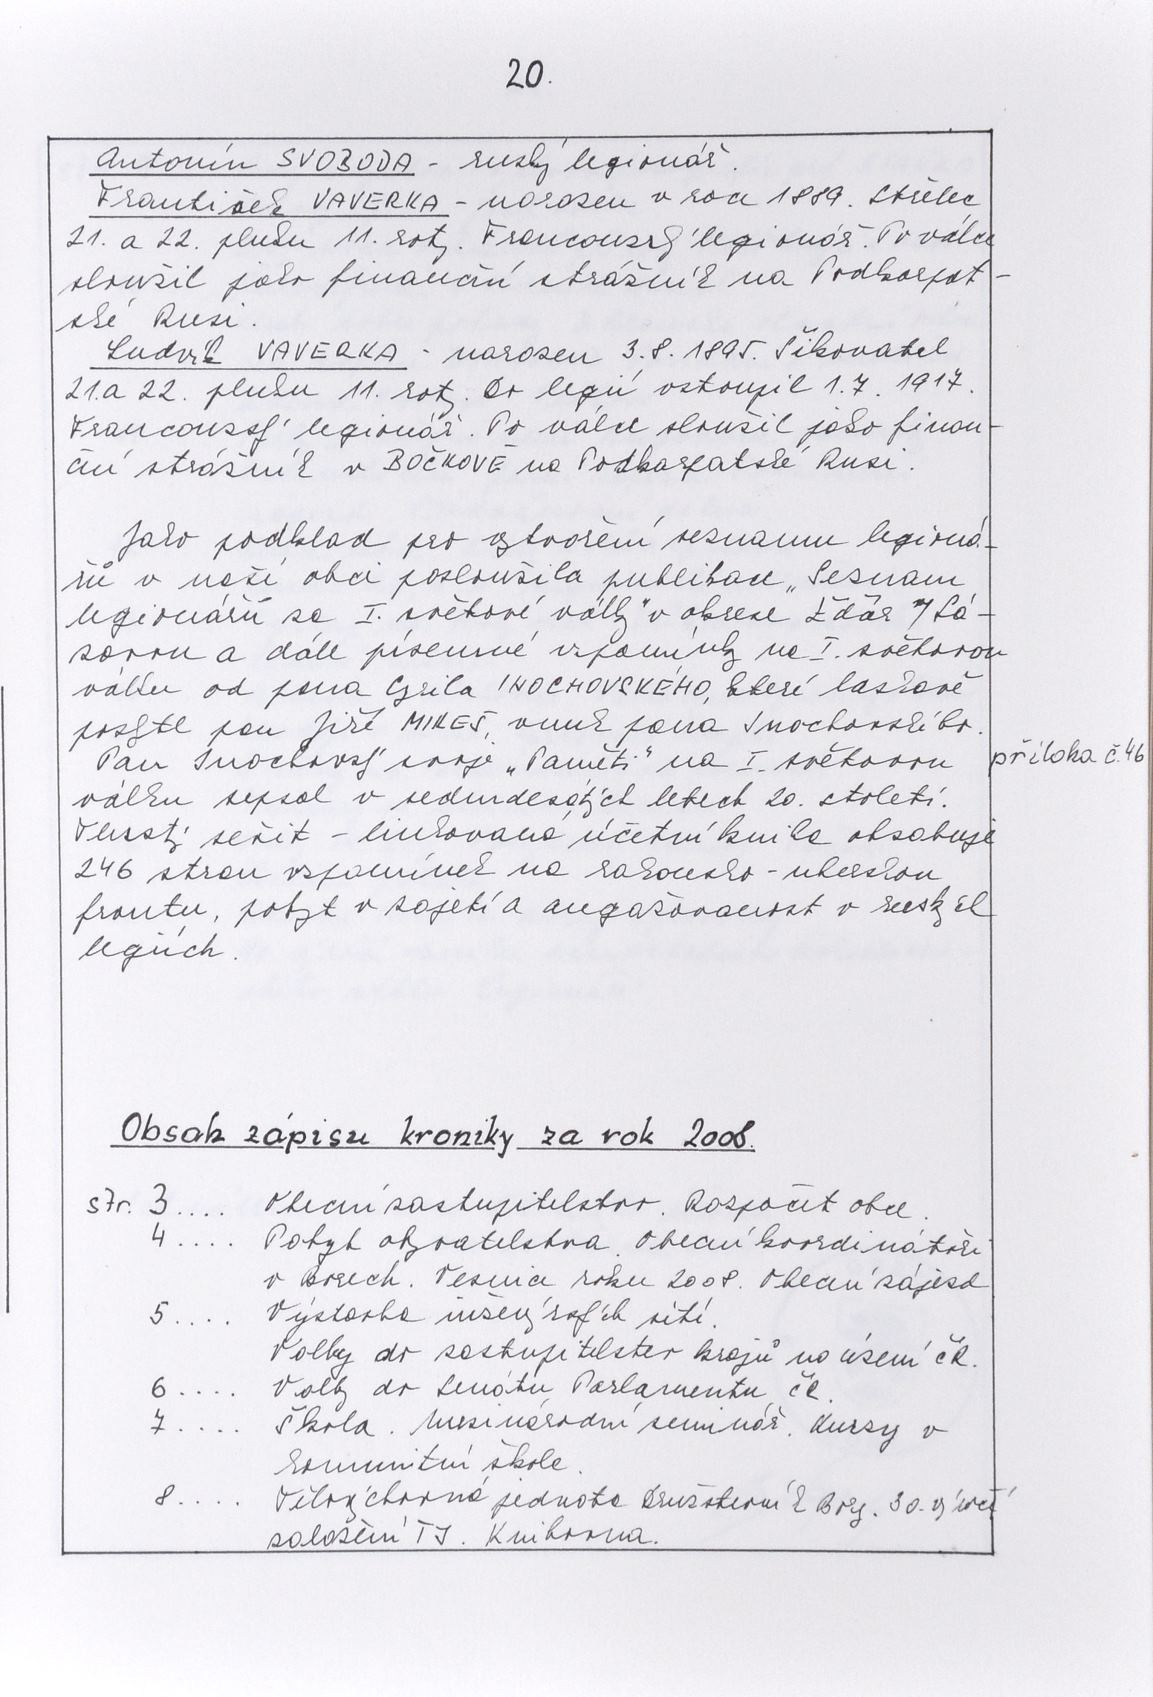 20.
Antonín SVOBODA - ruský legionář.
František VAVERKA - narozen v roce 1889. Střelec
21. a 22. pluku 11. roty. Francouzský legionář. Po válce
sloužil jako finanční strážník na Podkarpat-
ské Rusi.
Ludvík VAVERKA - narozen 3.8.1895. Šikovatel
21.a 22. pluku 11. roty. Do legií vstoupil 1.7.1917.
Francouzský legionář. Po válce sloužil jako finan-
ční strážník v BOČKOVĚ na Podkarpatské Rusi.
Jako podklad pro vytvoření seznamu legioná-
řů v naší obci posloužila publikace „Seznam
legionářů ze I. světové války" v okrese Žďár n/Sá-
zavou a dále písemné vzpomínky na I. světovou
válku od pana Cyrila INOCHOVSKÉHO, které laskavě
poskytl pan Jiří MIKEŠ, vnuk pana Inochovského.
Pan Inochovský svoje „Paměti" na I. světovou
příloha č.46
válku sepsal v sedmdesátých letech 20. století.
Tlustý sešit - linkovaná účetní kniha obsahuje
246 stran vzpomínek na rakousko - uherskou
frontu, pobyt v zajetí a angažovanost v ruských
legiích.
Obsah zápisu kroniky za rok 2008.
str. 3.... Obecní zastupitelstvo. Rozpočet obce.
4.... Pohyb obyvatelstva. Obecní koordinátoři
v Borech. Vesnice roku 2008. Obecní zájezd
5.... Výstavba inženýrských sítí.
Volby do zastupitelstev krajů na území ČR.
6.... Volby do Senátu Parlamentu ČR.
7.... Škola. Mezinárodní seminář. Kursy v
komunitní škole.
8.... Tělovýchovná jednota Družstevník Bory. 30. výročí
založení TJ. Knihovna.